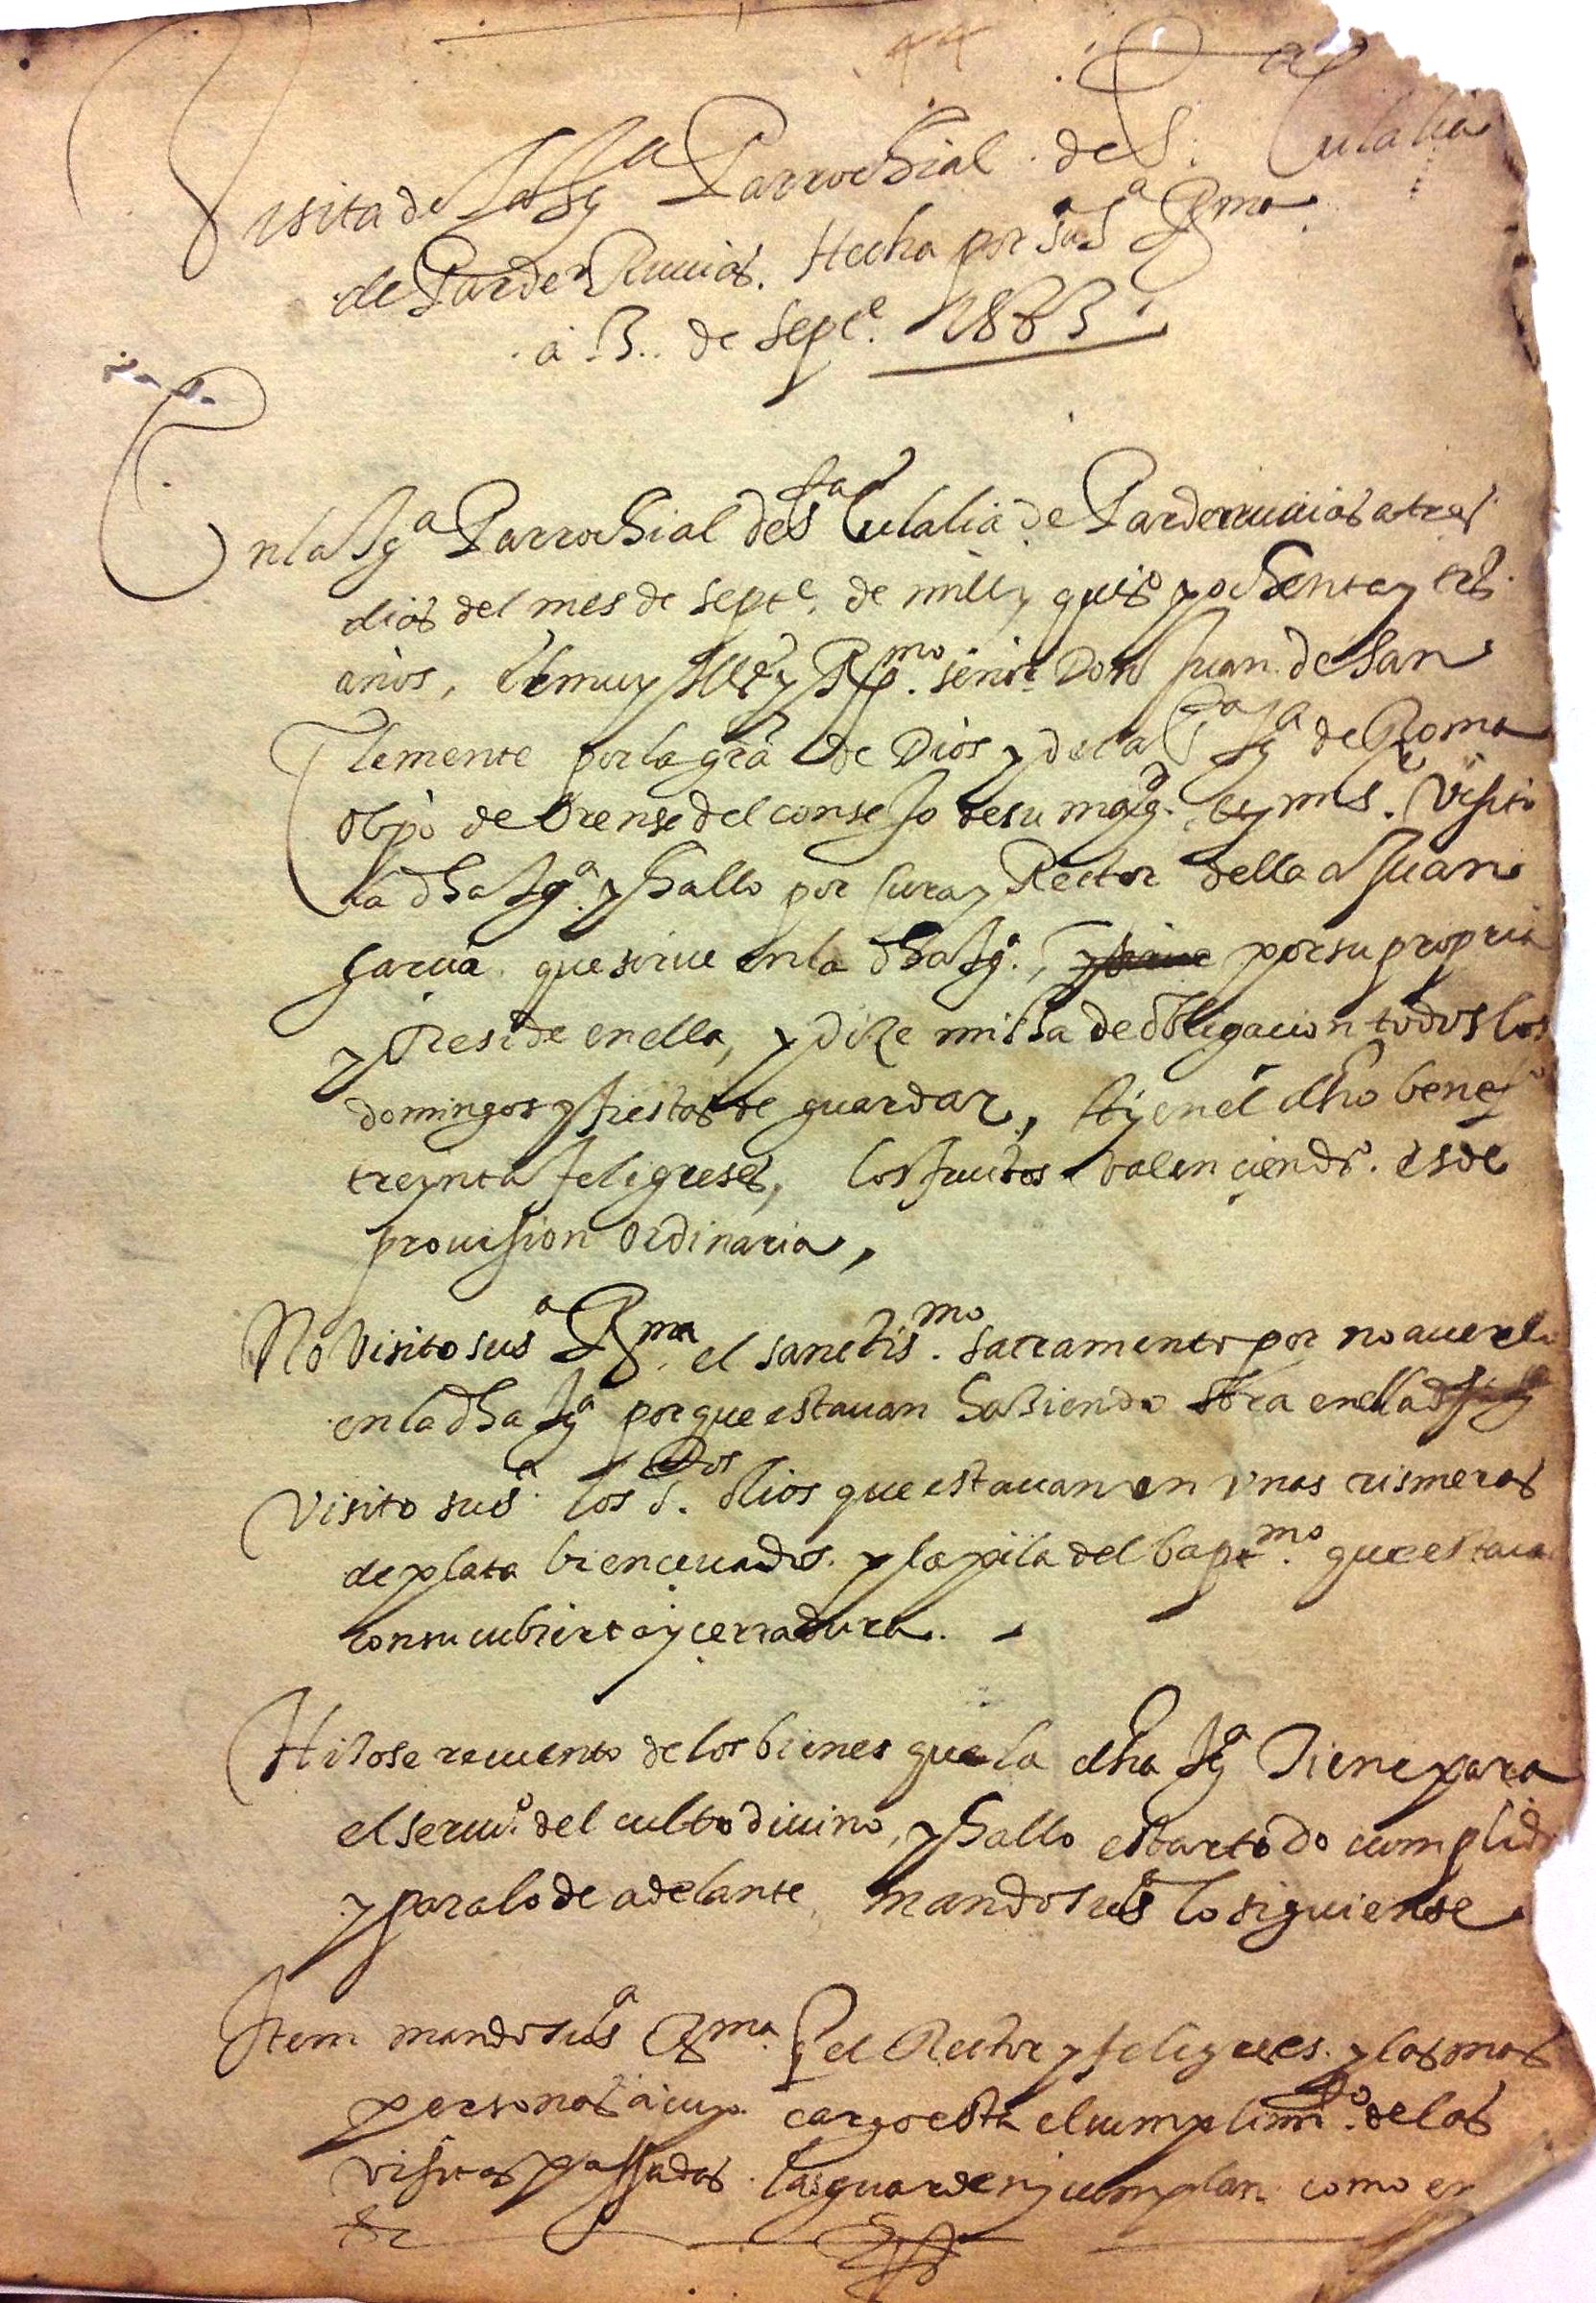 44
Visita de la Iga Parrochial de Sta Eulalia
de Parderruuias. Hecha por su Sa Rma
a .3.. de Septe. 1583
En la Iga Parrochial de Sta Eulalia de Parderruuias a tres
dias del mes de septe. de mill y quios y ochenta y tres
años, el muy Ille y Rmo. señor Don Juan de San
Clemente por la gra de Dios y de la Sta Iga de Roma
obpo de Orense del consejo de su magd. &. Visito
la dha Iga. y hallo por cura y Rector della a Juan
garcia que sirue en la dha Iga., por su propria
y Reside en ella, y dize missa de obligacion todos los
domingos y fiestas de guardar, Ay en el dho benefo
treynta feligreses, los fructos valen çien ds. es de
prouission ordinaria,
No visito su Sa Rma. el sanctismo. sacramento por no auerlo
en la dha Iga porque estauan haziendo obra en ella
Visito su Sa. los Stos. olios que estauan en vnas crismeras
de plata bien ceuados. y la pila del baptmo. que estaua
con su cubierta y çerradura.
Hizose recuento de los bienes que la dha Iga tiene para
el seruio. del culto diuino, y hallo estar todo cumplido
y para lo de adelante mando su Sa lo siguiente
Item mando su Sa Rma. q el Rector y feligreses. y las mas
personas a cuyo cargo esta el cumplimto. de las
visitas passadas. las guarden y cumplan como en